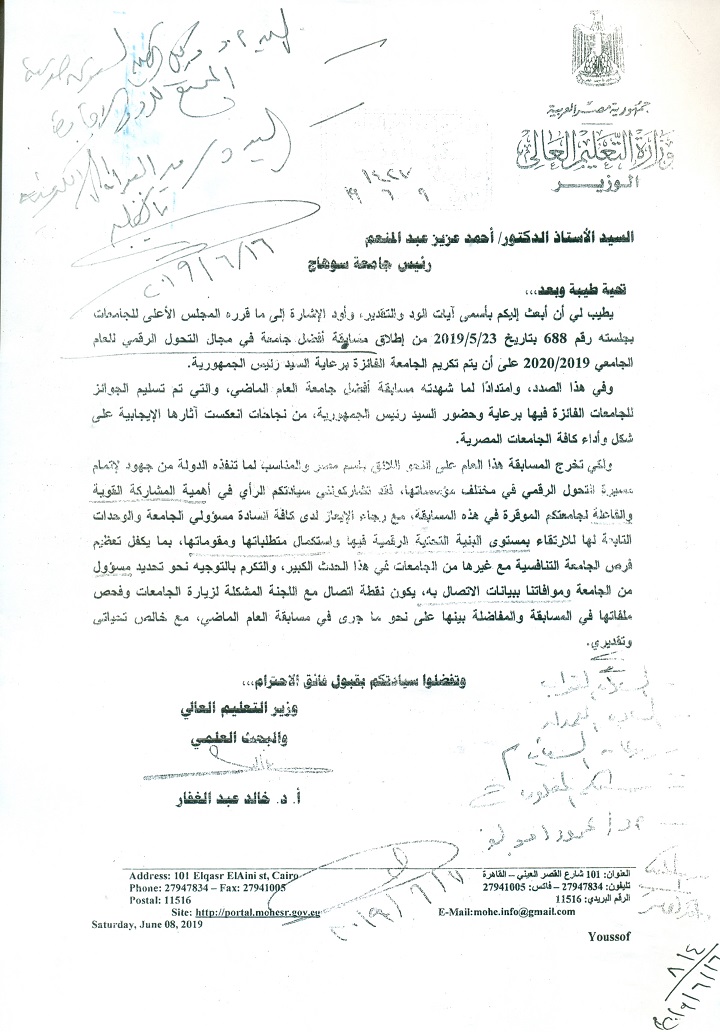 جمهورية مصر العربية
وزارة التعليم العالى
الوزير
السيد الأستاذ الدكتور/ أحمد عزيز عبد المنعم
رئيس جامعة سوهاج
تحية طيبة وبعد...
يطيب لي أن أبعث إليكم بأسمى آيات الود والتقدير، وأود الإشارة إلى ما قرره المجلس الأعلى للجامعات
بجلسته رقم 688 بتاريخ 2019/5/23 من إطلاق مسابقة أفضل جامعة في مجال التحول الرقمي للعام
الجامعي 2020/2019 على أن يتم تكريم الجامعة الفائزة برعاية السيد رئيس الجمهورية.
وفي هذا الصدد، وامتدادًا لما شهدته مسابقة أفضل جامعة العام الماضي، والتي تم تسليم الجوائز
للجامعات الفائزة فيها برعاية وحضور السيد رئيس الجمهورية، من نجاحات انعكست آثارها الإيجابية على
شكل وأداء كافة الجامعات المصرية.
ولكي تخرج المسابقة هذا العام على النحو اللائق باسم مصر والمناسب لما تنفذه الدولة من جهود لإتمام
مسيرة التحول الرقمي في مختلف مؤسساتها، فقد تشاركونني سيادتكم الرأي في أهمية المشاركة القوية
والفاعلة لجامعتكم الموقرة في هذه المسابقة، مع رجاء الإيعاز لدى كافة السادة مسؤولي الجامعة والوحدات
التابعة لها للارتقاء بمستوى البنية التحتية الرقمية فيها واستكمال متطلباتها ومقوماتها، بما يكفل تعظيم
فرص الجامعة التنافسية مع غيرها من الجامعات في هذا الحدث الكبير، والتكرم بالتوجيه نحو تحديد مسؤول
من الجامعة وموافاتنا ببيانات الاتصال به، يكون نقطة اتصال مع اللجنة المشكلة لزيارة الجامعات وفحص
ملفاتها في المسابقة والمفاضلة بينها على نحو ما جرى في مسابقة العام الماضي، مع خالص تحياتي
وتقديري.
وتفضلوا سيادتكم بقبول فائق الاحترام...
وزير التعليم العالي
والبحث العلمي
أ. د. خالد عبد الغفار
العنوان: 101 شارع القصر العيني – القاهرة
تليفون: 27947834 – فاكس: 27941005
الرقم البريدي: 11516
Address: 101 Elqasr ElAini st, Cairo
Phone: 27947834 – Fax: 27941005
Postal: 11516
Site: http://portal.mohesr.gov.eg
E-Mail:mohe.info@gmail.com
Saturday, June 08, 2019
Youssof
٢٠١٩/٦/١٦